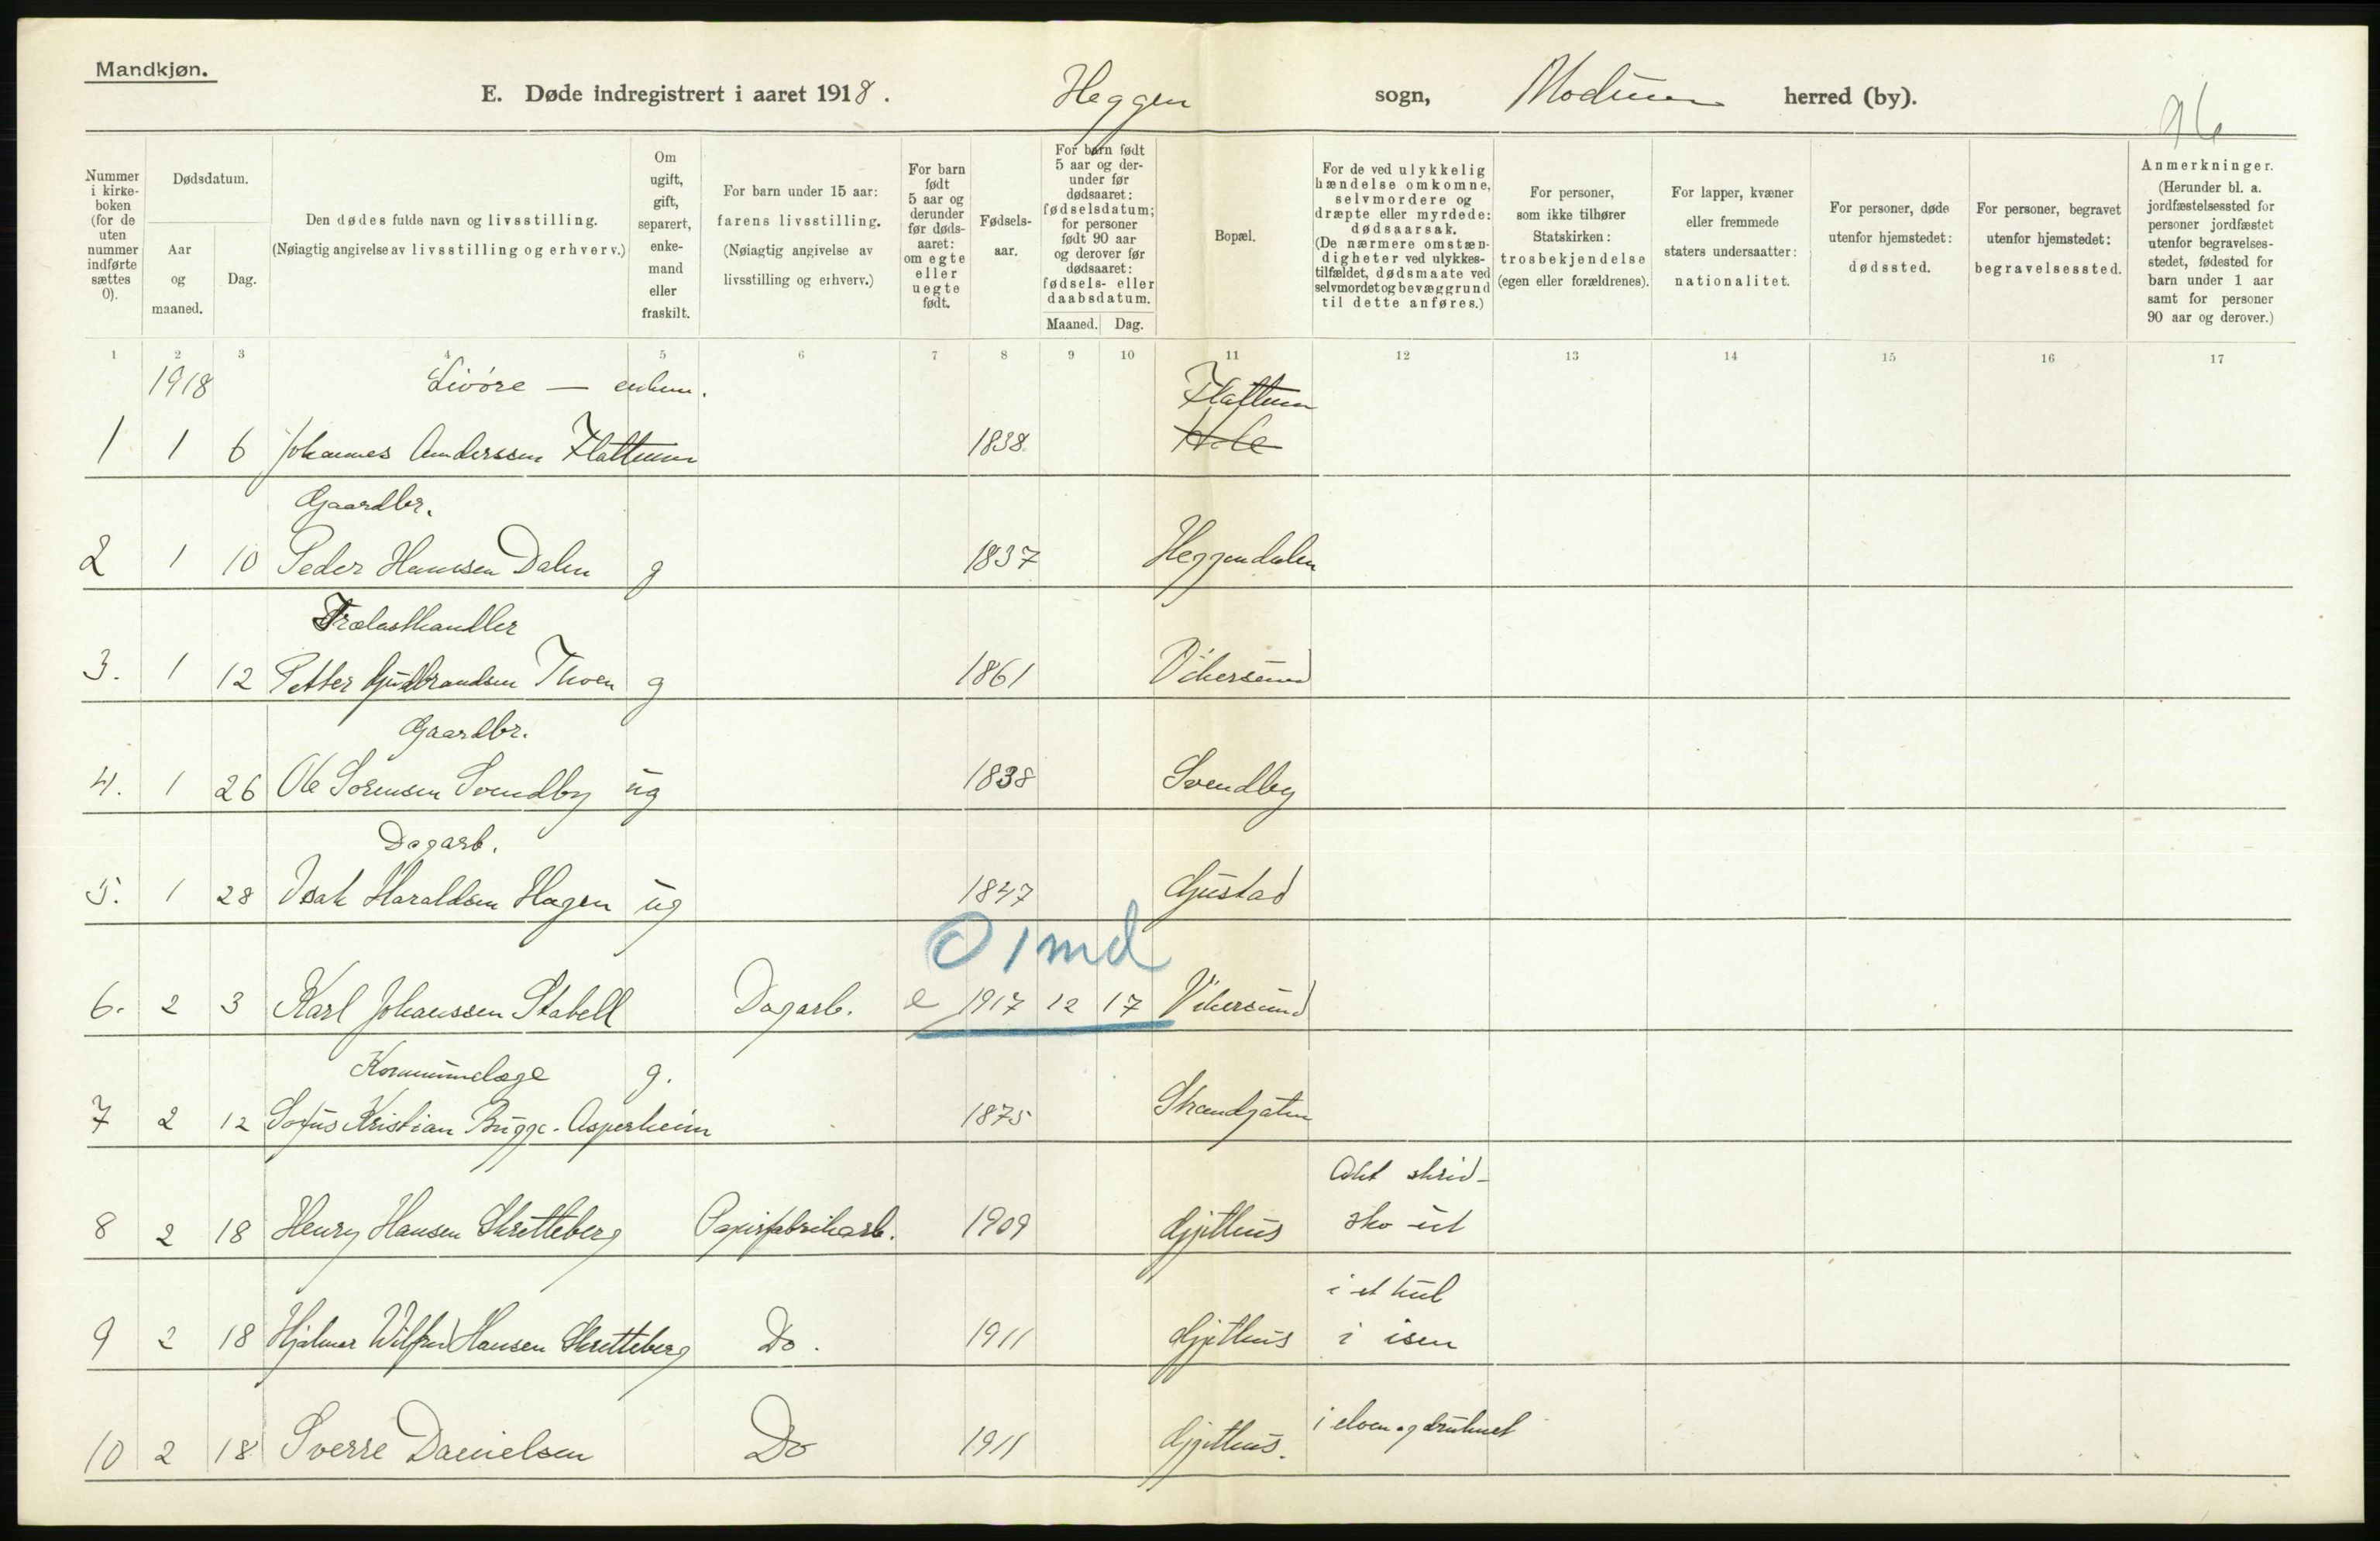 Mandkjøn.
E. Døde indregistrert i aaret 1918. Heggen sogn, Modum herred (by).
96
Nummer i kirkeboken (for de uten nummer indførte sættes 0).
Dødsdatum.
Aar og maaned.
Dag.
Den dødes fulde navn og livsstilling.
(Nøiagtig angivelse av livsstilling og erhverv.)
Om ugift, gift, separert, enkemand eller fraskilt.
For barn under 15 aar: farens livsstilling.
(Nøiagtig angivelse av livsstilling og erhverv.)
For barn født 5 aar og derunder før dødsaaret: om egte eller uegte født.
Fødselsaar.
For barn født 5 aar og derunder før dødsaaret: fødselsdatum; for personer født 90 aar og derover før dødsaaret: fødsels- eller daabsdatum.
Maaned. Dag.
Bopæl.
For de ved ulykkelig hændelse omkomne, selvmordere og dræpte eller myrdede: dødsaarsak.
(De nærmere omstændigheter ved ulykkestilfældet, dødsmaate ved selvmordet og bevæggrund til dette anføres.)
For personer, som ikke tilhører Statskirken: trosbekjendelse (egen eller forældrenes).
For lapper, kvæner eller fremmede staters undersaatter: nationalitet.
For personer, døde utenfor hjemstedet: dødssted.
For personer, begravet utenfor hjemstedet: begravelsessted.
Anmerkninger.
(Herunder bl. a. jordfæstelsessted for personer jordfæstet utenfor begravelsesstedet, fødested for barn under 1 aar samt for personer 90 aar og derover.)
1 2 3 4 5 6 7 8 9 10 11 12 13 14 15 16 17
1918 Livøre — enkem. Flattum
1 1 6 Johannes Anderssen Flattum 1838 Hole
Gaardbr.
2 1 10 Peder Hanssen Dalen g 1837 Heggendalen
Trælasthandler
3. 1 12 Petter Gudbrandsen Thoen g 1861 Vikersund
Gaardbr.
4. 1 26 Ole Sørensen Svendby ug 1838 Svendby
Dagarb.
5. 1 28 Isak Haraldsen Hagen ug 1847 Gustad
0 1 md
6. 2 3 Karl Johanssen Stabell Dagarb. e 1917 12 17 Vikersund
Kommunelæge g.
7 2 12 Sofus Kristian Bugge-Asperheim 1875 Strandgaten
Akt skrid-
8 2 18 Henry Hansen Skretteberg Papirfabrikarb. 1909 Gjethus sko ut
i et hul
9 2 18 Hjalmar Wilfred Hansen Skretteberg Do. 1911 Gjethus i isen
i elven og druknet
10 2 18 Sverre Danielsen Do 1911 Gjethus.